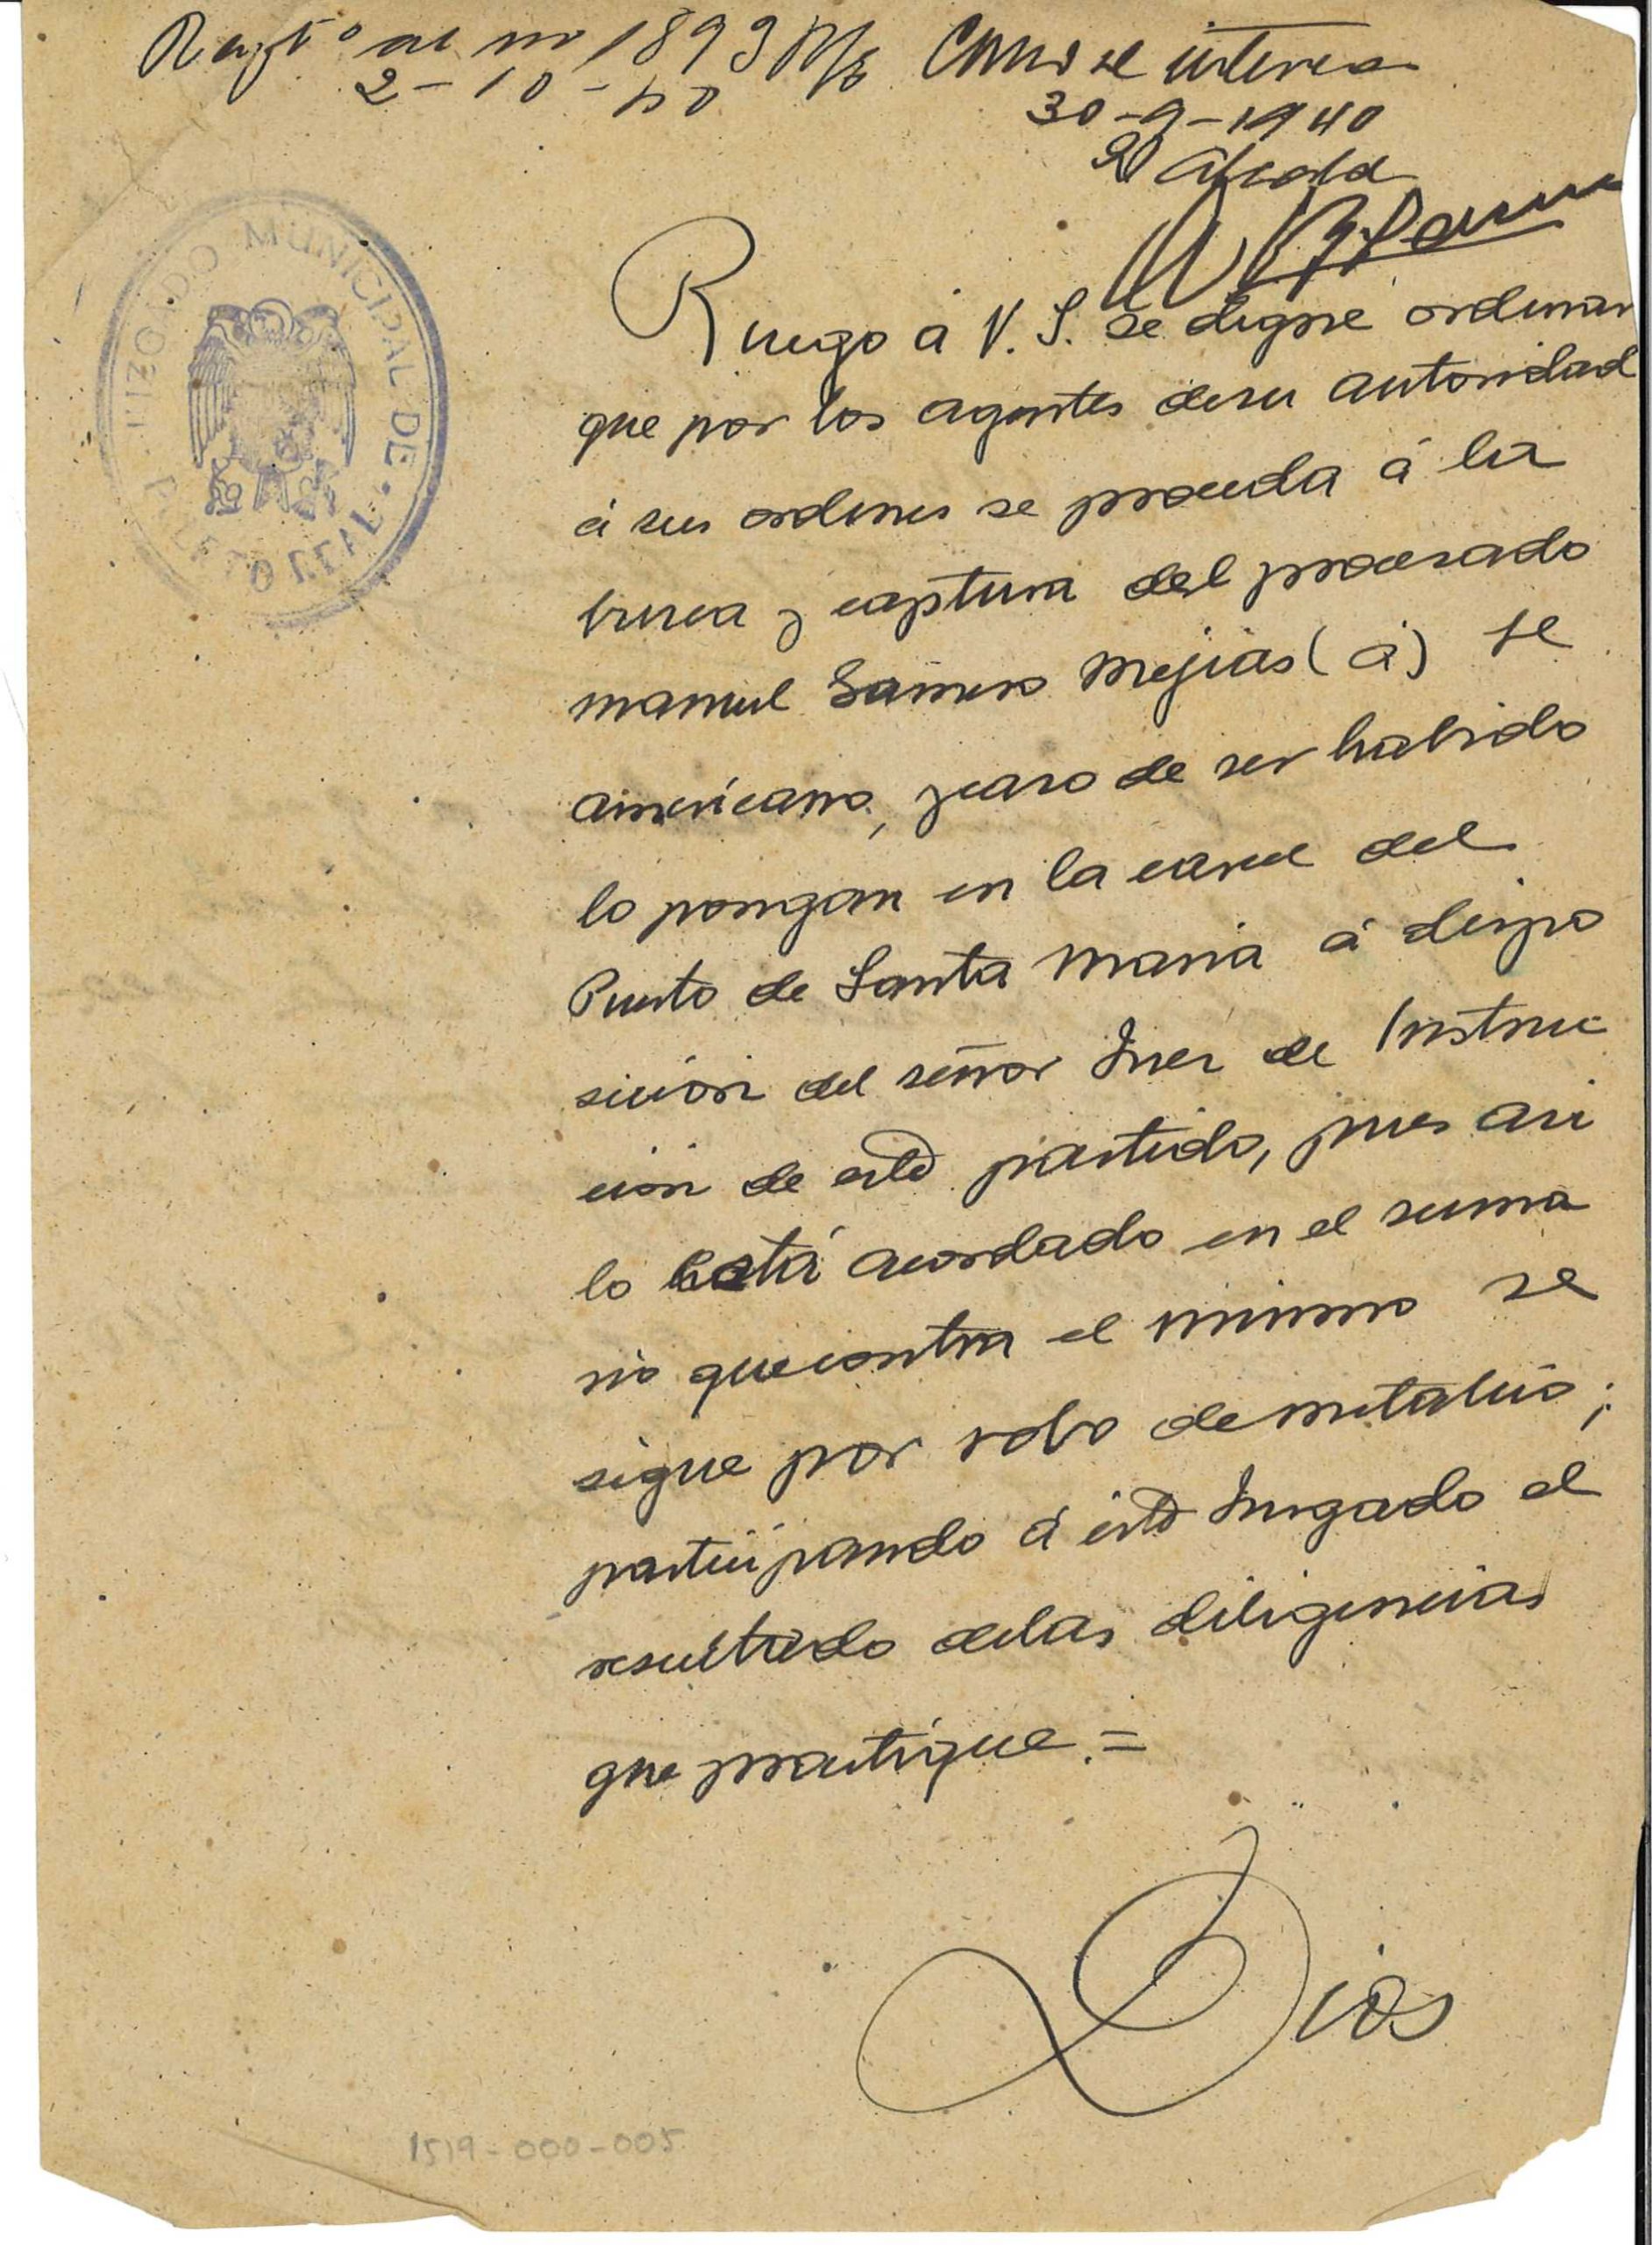 Regtº al nº 1899
2-10-40
Como se interesa
30-9-1940
El Alcalde
JUZGADO MUNICIPAL DE
PUERTO REAL
Ruego á V. S. se digne ordenar
que por los agentes desu autoridad
á sus ordenes se proceda á la
busca y captura del procesado
manuel Mejias (á) el
américano, y caso de ser habido
lo pongan en la carcel del
Puerto de Santa Maria á dispo
sición del señor Juez de Instruc
ción de este partido, pues asi
lo está acordado en el suma
rio quecontra el mismo se
sigue por robo demetalico;
participando á éste Jurgado el
resultado delas diligencias
que practique.=
Dios
1519-000-005